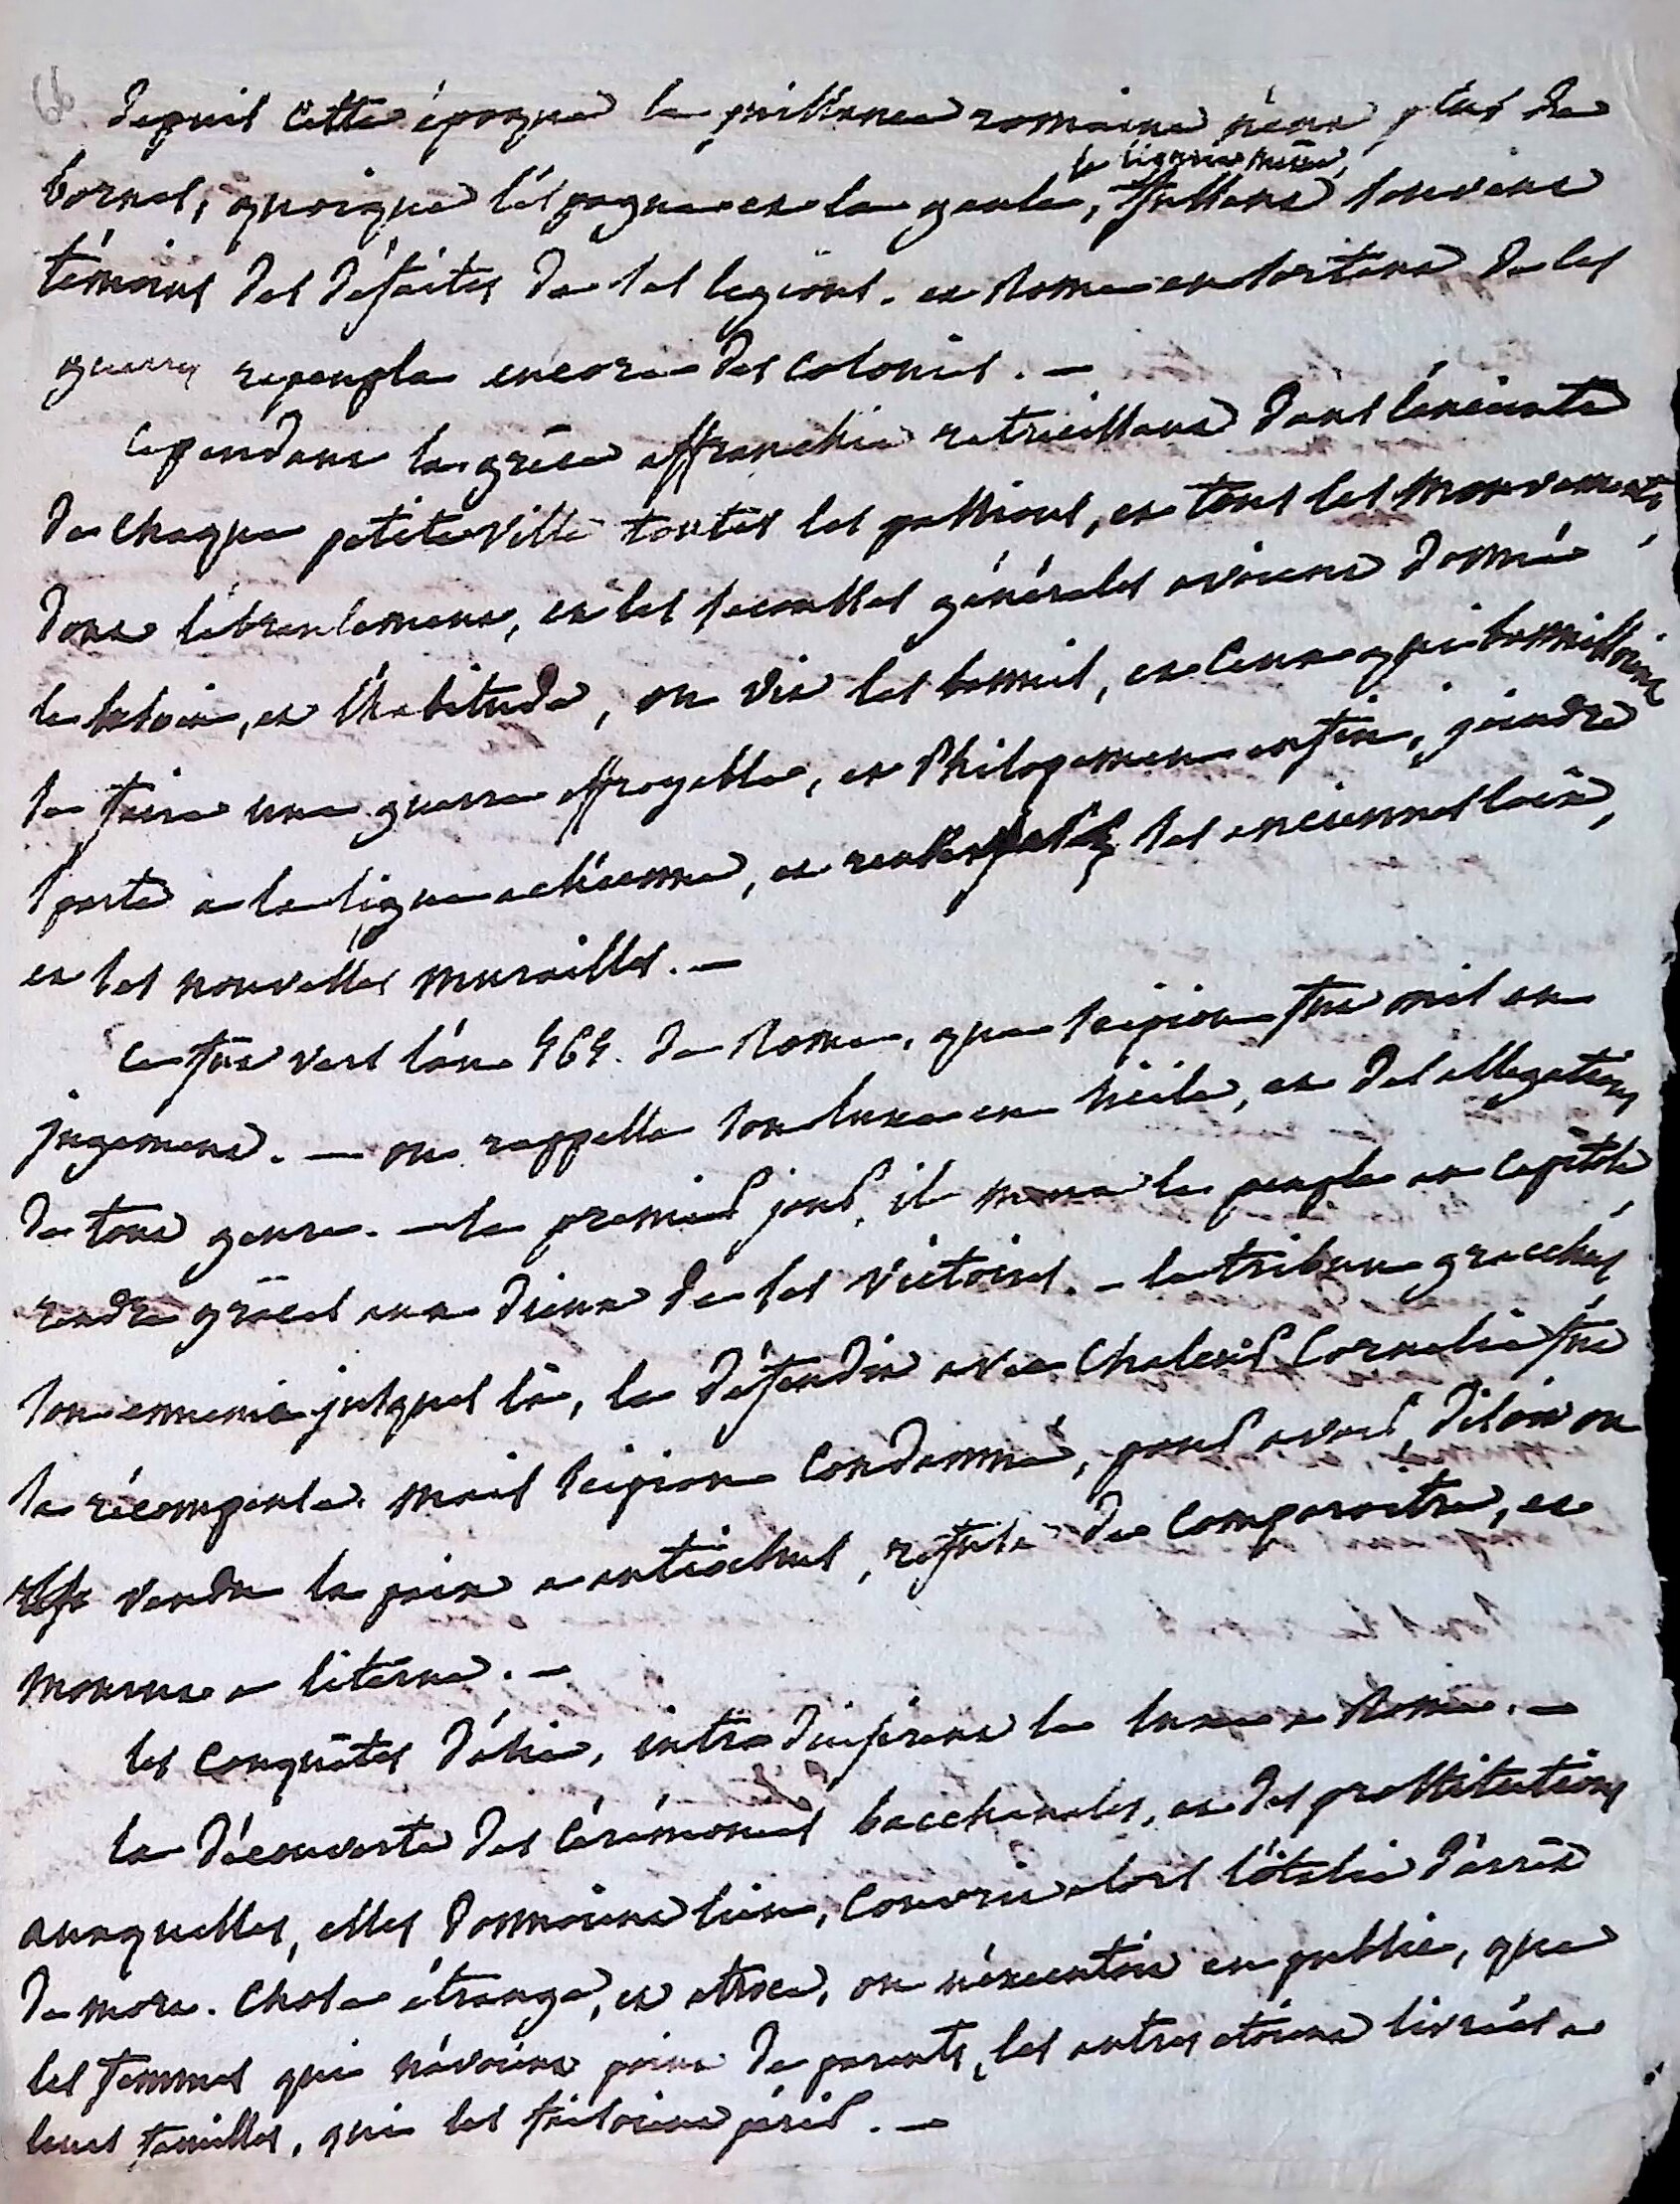 66
depuis cette époque la puissance romaine n'eut plus de
la ligurie même,
bornes, quoique l'espagne et la gaule, fussent souvent
témoins des défaites de ses legions. et Rome en sortant de ses
guerres repeupla encore des colonies. —
cependant la grèce affranchie retrécissant dans l'enceinte
de chaque petite ville toutes les passions, et tous les mouvements,
dont l'ébranlement, et les secousses générales avoient donné
le besoin, et l'habitude, on vit les bannis, et ceux qui bannissoient
se faire une guerre effroyable, et Philopemen enfin, joindre
sparte a la ligue achéenne, et renverser ses anciennes loix,
et ses nouvelles murailles. —
ce fut vers l'an 564. de Rome, que scipion fut mis en
jugement. — on rappella son luxe en sicile, et des allegations
de tout genre. — le premier jour, il mena le peuple au capitole
rendre grâces aux dieux de ses victoires. — le tribun gracchus,
son ennemi jusques là, le défendit avec chaleur Cornelie fut
sa récompense. mais scipion condamné, pour avoir, disoit on
vendu la paix a antiochus, refusa de comparoitre, et
mourut a literne. —
les conquêtes d'asie, introduisirent le luxe a Rome. —
la découverte des cérémonies bacchanales, et des prostitutions
auxquelles, elles donnoient lieu, couvrit alors l'italie d'arrêts
de mort. chose étrange, et atroce, on n'éxécutoit en public, que
les femmes qui n'avoient point de parents, les autres etoient livrées a
leurs familles, qui les faisoient périr. —